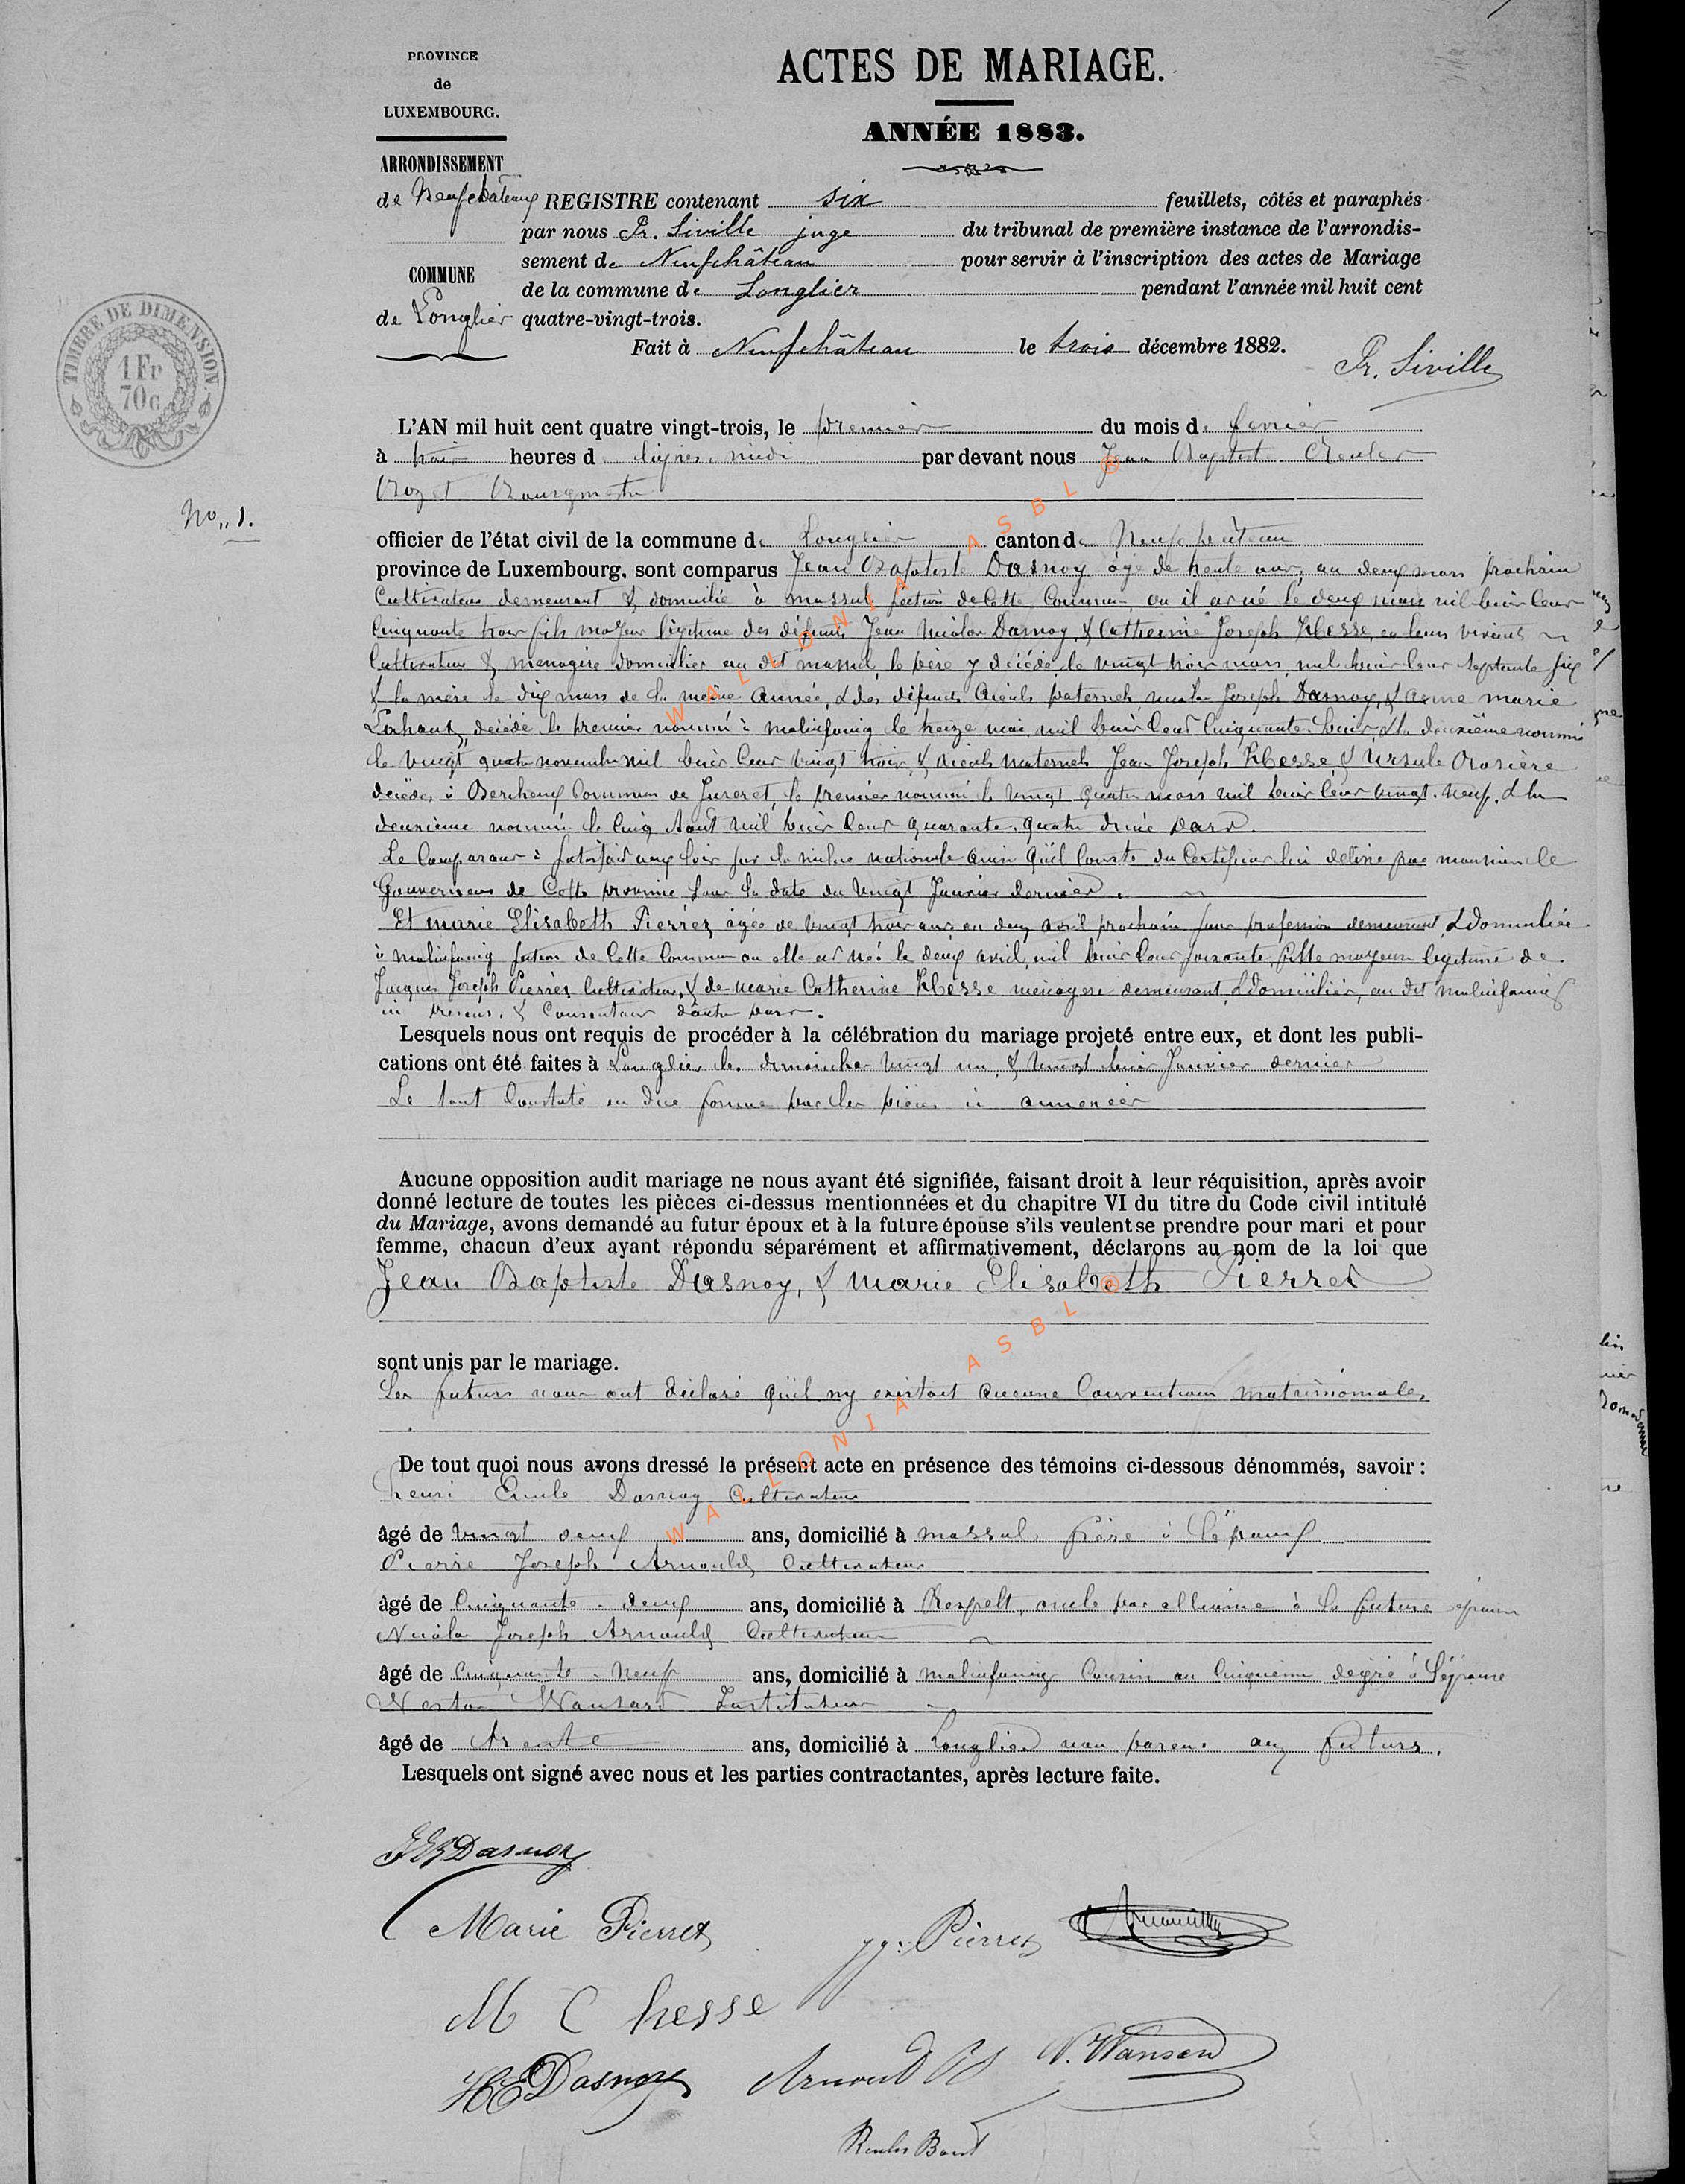 PROVINCE
de
LUXEMBOURG.
ARRONDISSEMENT
de Neufchateau
COMMUNE
de Longlier
TIMBRE DE DIMENSION.
1 Fr
70 c
No 1.
ACTES DE MARIAGE.
ANNÉE 1883.
REGISTRE contenant six feuillets, côtés et paraphés
par nous Pr. Siville juge du tribunal de première instance de l'arrondis-
sement de Neufchâteau pour servir à l'inscription des actes de Mariage
de la commune de Longlier pendant l'année mil huit cent
quatre-vingt-trois.
Fait à Neufchâteau le trois décembre 1882.
Pr. Siville
L'AN mil huit cent quatre vingt-trois, le premier du mois de fevrier
à trois heures d midi par devant nous Jean Baptiste Reuler
Bozet Bourgmestre
officier de l'état civil de la commune de Longlier canton de Neufchateau
province de Luxembourg, sont comparus Jean Baptiste Dasnoy âgé de trente ans, au deux mars prochain
Cultivateur demeurant & domicilié à massul section de cette Commune où il est né le deux mars mil huit cent
cinquante trois fils majeur légitime des défunts Jean Nicolas Dasnoy & Catherine Joseph Hesse, en leur vivant
Cultivateur & menagère domiciliés au dit massul, le père y décédé le vingt trois mars mil huit cent septante six
& la mère le dix mars de la même année, & des défunts aieuls paternels Nicolas Joseph Dasnoy, & Anne marie
décédé le premier nommé à malinfaing le treize mai mil huit cent cinquante huit, & la deuxième nommé
le vingt quatre novembre mil huit cent vingt trois, & aieuls maternels Jean Joseph Hesse & Ursule Rosière
décédés à Bercheux Commune de Juseret, le premier nommé le vingt quatre mars mil huit cent vingt-neuf, & la
deuxième nommé le cinq Aout mil huit cent quarante-quatre d'une part.
Le Comparant à satisfait aux lois sur la milice nationale ainsi qu'il conste du certificat lui délivré par monsieur le
Gouverneur de cette province sous la date du vingt Janvier dernier.
Et marie Elisabeth Pierret âgée de vingt trois ans au deux avril prochain sans profession demeurant & domiciliée
à malinfaing section de cette Commune où elle est née le deux avril mil huit cent soixante, fille majeure légitime de
Jacques Joseph Pierret cultivateur, & de Marie Catherine Hesse menagere demeurant & domiciliés, au dit malinfaing
ici présens & consentans d'autre part.
Lesquels nous ont requis de procéder à la célébration du mariage projeté entre eux, et dont les publi-
cations ont été faites à Longlier les dimanches vingt un & vingt huit Janvier dernier
Le tout constaté en due forme par les pièces ci annexées
Aucune opposition audit mariage ne nous ayant été signifiée, faisant droit à leur réquisition, après avoir
donné lecture de toutes les pièces ci-dessus mentionnées et du chapitre VI du titre du Code civil intitulé
du Mariage, avons demandé au futur époux et à la future épouse s'ils veulent se prendre pour mari et pour
femme, chacun d'eux ayant répondu séparément et affirmativement, déclarons au nom de la loi que
Jean Baptiste Dasnoy, & Marie Elisabeth Pierret
sont unis par le mariage.
Les futurs nous ont déclaré qu'il ny existait aucune Convention matrimoniale,
De tout quoi nous avons dressé le présent acte en présence des témoins ci-dessous dénommés, savoir :
henri Emile Dasnoy Cultivateur
âgé de vingt deux ans, domicilié à massul frère à l'époux
Pierre Joseph Arnould, Cultivateur
âgé de cinquante-deux ans, domicilié à Respelt, oncle par alliance à la future épouse
Nicolas Joseph Arnould Cultivateur
âgé de cinquante-neuf ans, domicilié à malinfaing Cousin au cinquième degré à l'épouse
Nestor Wansart Instituteur
âgé de trente ans, domicilié à Longlier non parent aux futurs.
Lesquels ont signé avec nous et les parties contractantes, après lecture faite.
JB Dasnoy
Marie Pierret
JJ. Pierret
M C hesse
HE Dasnoy
Arnould
N. Wansart
WALLONIA ASBL ®
WALLONIA ASBL ®